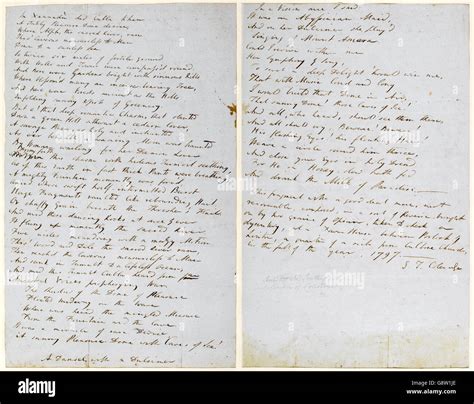 In Xannadù did Cubla Khan
A stately Pleasure-Dome decree;
Where Alph, the sacred River, ran
Thro' Caverns measureless to Man
Down to a sunless Sea.
So twice six miles of fertile ground
With Walls and Towers were compass'd round:
And here were Gardens bright with sinuous Rills
Where blossom'd many an incense-bearing Tree,
And here were Forests ancient as the Hills
Enfolding sunny Spots of Greenery.
But o! that deep romantic Chasm, that slanted
Down a green Hill
A savage Place, as holy and inchanted
As e'er beneath a waning Moon was haunted
By Woman wailing for her Daemon Lover:
this Earth in fast thick Pants were breathing,
A mighty Fountain
Amid
Huge Fragments vaulted like rebounding Hail,
Or chaffy Grain beneath the Thresher's Flail:
And mid these dancing Rocks
It flung up momently the sacred River.
meandering with a mazy Motion
Thro' Wood and Dale the sacred River ran,
Then reach'd the Caverns measureless to Man
And sank in Tumult to a lifeless Ocean;
And mid this Tumult Cubla heard from
Ancestral Voices prophesying War.
The Shadow of the Dome of Pleasure
Floated midway on the Wave
Where was heard the mingled Measure
From the Fountain and the Cave.
It was a miracle of rare Device,
A sunny Pleasure-Dome with Caves of Ice!
A Damsel with a Dulcimer
In a Vision once I saw:
It was an Abyssinian Maid,
And on her Dulcimer she play'd
Singing of Mount
Could I revive within me
Her Symphony & Song,
To such a deep Delight 'twould win me,
That with Music loud and long
I would build that Dome in Air,
That sunny Dome! those Caves of Ice!
And all, who heard, should see them there,
And all should cry, Beware! Beware!
His flashing Eyes! his floating Hair!
Weave a circle round him thrice,
And close your Eyes in holy Dread:
For He on Honey-dew hath fed
And drank the Milk of Paradise.
This fragment with a good deal more, not
recoverable, composed, in a sort of Reverie brought
on by two grains of Opium, taken to check a
dysentery, at a Farm House between Porlock &
Linton, a quarter of a mile from Culbone Church,
in the fall of the year, 1797.
S. T. Coleridge
alamy stock photo